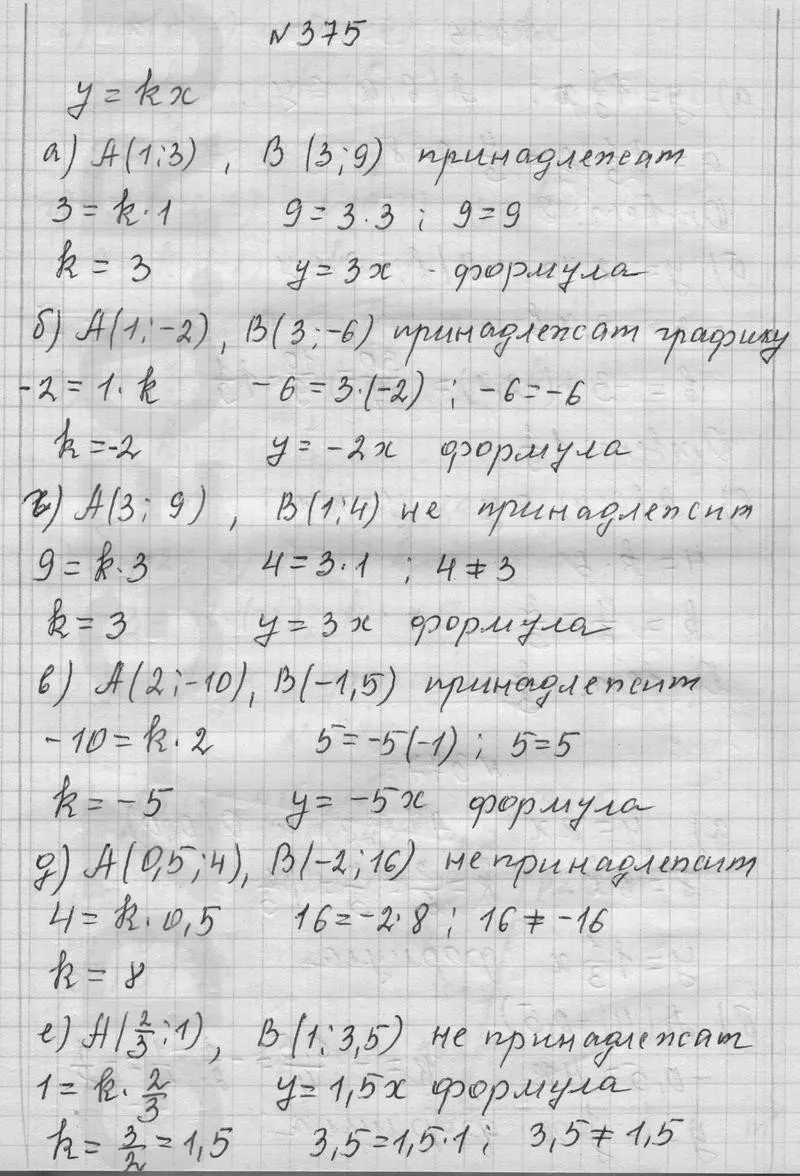 №375
y = kx
а) A(1;3), B(3;9) принадлежат
3 = k·1 9 = 3·3; 9 = 9
k = 3 y = 3x - формула
б) A(1;-2), B(3;-6) принадлежат графику
-2 = 1·k -6 = 3·(-2); -6 = -6
k = -2 y = -2x формула
г) A(3; 9), B(1;4) не принадлежит
9 = k·3 4 = 3·1; 4 ≠ 3
k = 3 y = 3x формула
в) A(2;-10), B(-1,5) принадлежит
-10 = k·2 5 = -5(-1); 5 = 5
k = -5 y = -5x формула
д) A(0,5;4), B(-2;16) не принадлежит
4 = k·0,5 16 = -2·8; 16 ≠ -16
k = 8
е) A(2/3;1), B(1;3,5) не принадлежат
1 = k·2/3 y = 1,5x формула
k = 3/2 = 1,5 3,5 = 1,5·1; 3,5 ≠ 1,5